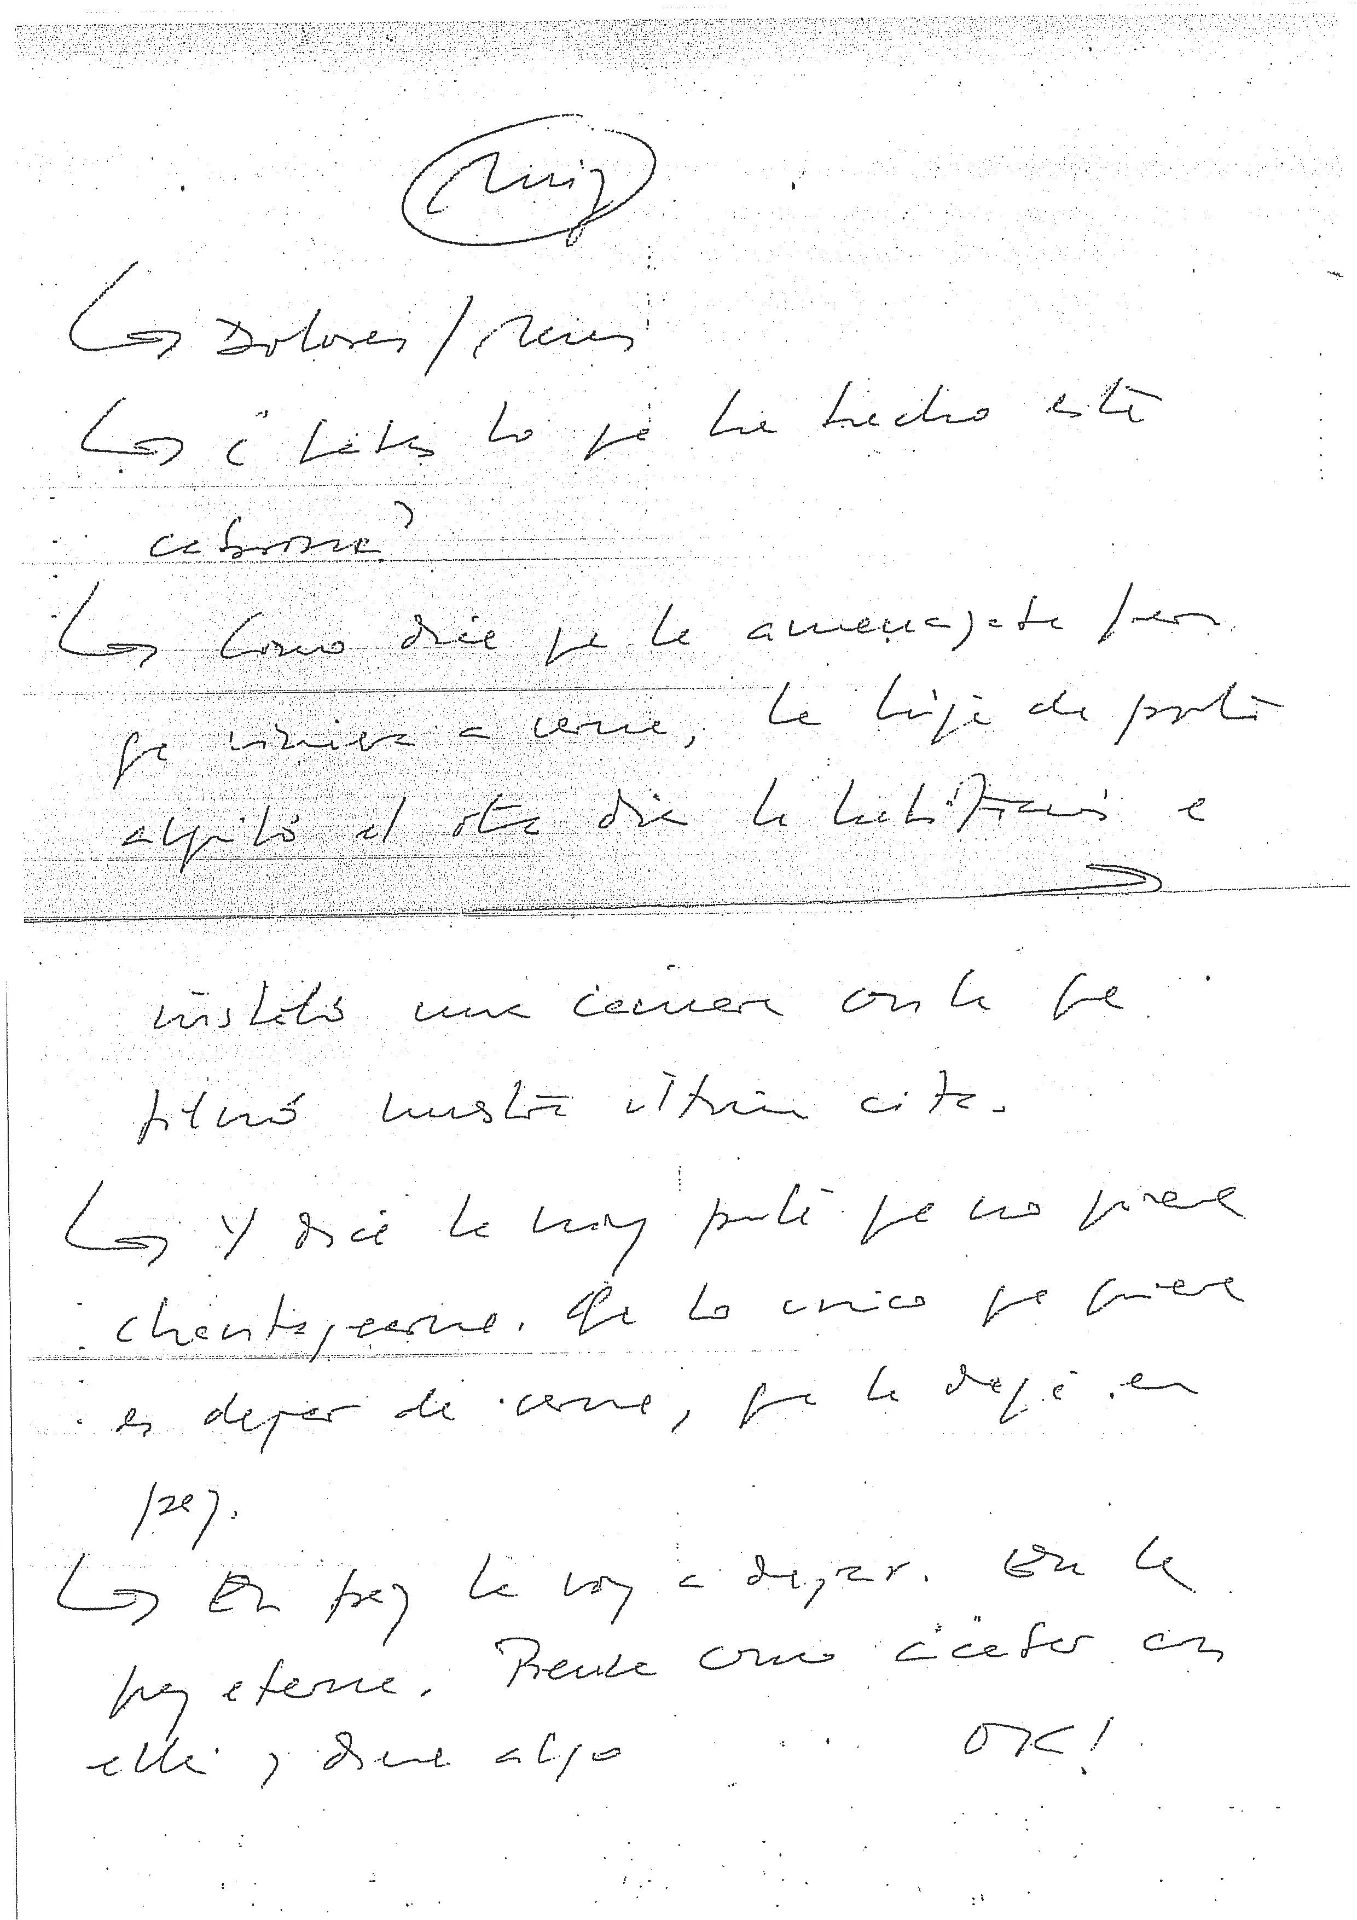 Ruiz
Dolores /
¿Sabes lo que ha hecho esta
cabrona?
Como dice que la amenazaba para
que viniera a verme, la hija de puta
alquiló el otro día la habitación e
instaló una cámara con la que
filmó nuestra última cita.
Y dice la muy puta que no quiere
chantajearme. Que lo único que quiere
es dejar de verme, que la deje en
paz.
En paz la voy a dejar. En la
paz eterna. Piensa como acabar con
ella y dime algo OK!